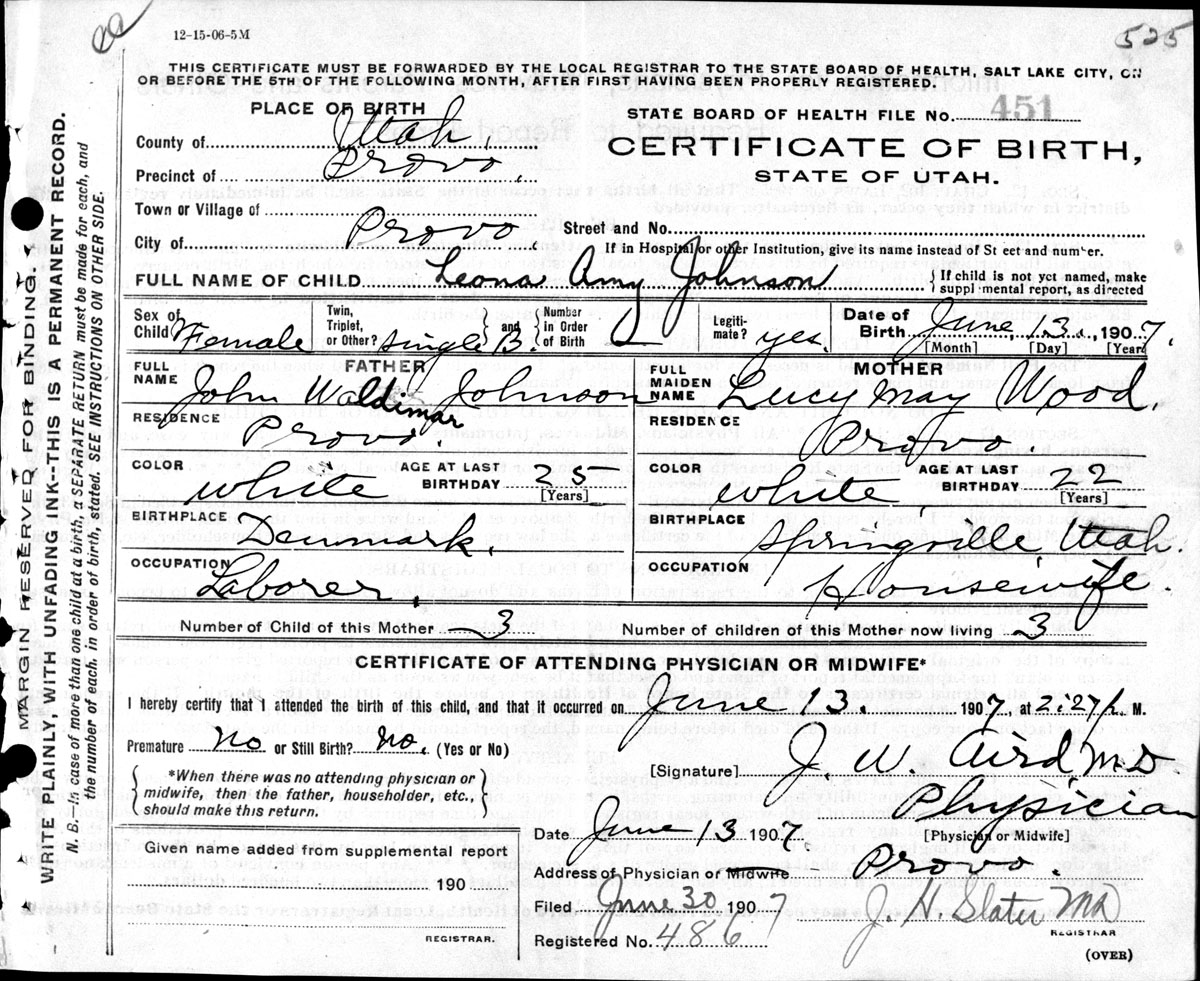 12-15-06-5M
525
THIS CERTIFICATE MUST BE FORWARDED BY THE LOCAL REGISTRAR TO THE STATE BOARD OF HEALTH, SALT LAKE CITY, ON
OR BEFORE THE 5TH OF THE FOLLOWING MONTH, AFTER FIRST HAVING BEEN PROPERLY REGISTERED.
PLACE OF BIRTH
STATE BOARD OF HEALTH FILE No. 451
County of Utah.
CERTIFICATE OF BIRTH,
Precinct of Provo.
STATE OF UTAH.
Town or Village of
City of Provo
Street and No.
If in Hospital or other Institution, give its name instead of Street and number.
FULL NAME OF CHILD Leona Amy Johnson
{If child is not yet named, make supplemental report, as directed
Sex of Child Female
Twin, Triplet, or Other? Single
and {Number in Order of Birth
Legitimate? yes.
Date of Birth June, 13., 1907.
[Month] [Day] [Year]
FATHER
FULL NAME John Waldimar Johnson
RESIDENCE Provo.
COLOR White
AGE AT LAST BIRTHDAY 25 [Years]
BIRTHPLACE Denmark.
OCCUPATION Laborer.
MOTHER
FULL MAIDEN NAME Lucy May Wood.
RESIDENCE Provo.
COLOR White
AGE AT LAST BIRTHDAY 22 [Years]
BIRTHPLACE Springville, Utah.
OCCUPATION Housewife.
Number of Child of this Mother 3
Number of children of this Mother now living 3
CERTIFICATE OF ATTENDING PHYSICIAN OR MIDWIFE*
I hereby certify that I attended the birth of this child, and that it occurred on June 13. 1907, at 2:27 M.
Premature no or Still Birth? no. (Yes or No)
{*When there was no attending physician or midwife, then the father, householder, etc., should make this return.}
[Signature] J. W. Aird M.D.
Physician
[Physician or Midwife]
Date June 13 1907.
Address of Physician or Midwife Provo.
Give name added from supplemental report
190
REGISTRAR.
Filed June 30 1907
J. H. Slater MD
REGISTRAR
Registered No. 486
(OVER)
MARGIN RESERVED FOR BINDING.
WRITE PLAINLY, WITH UNFADING INK--THIS IS A PERMANENT RECORD.
N. B.—In case of more than one child at a birth, a SEPARATE RETURN must be made for each, and
the number of each, in order of birth, stated. SEE INSTRUCTIONS ON OTHER SIDE.